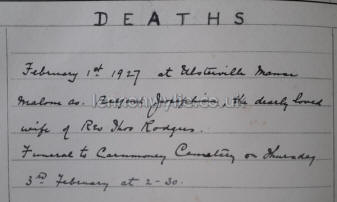 DEATHS
February 1st 1927 at Ulsterville Manse
Malone av. Josephine, the dearly loved
wife of Rev Thos Rodgers.
Funeral to Carnmoney Cemetery on Thursday
3rd February at 2-30.